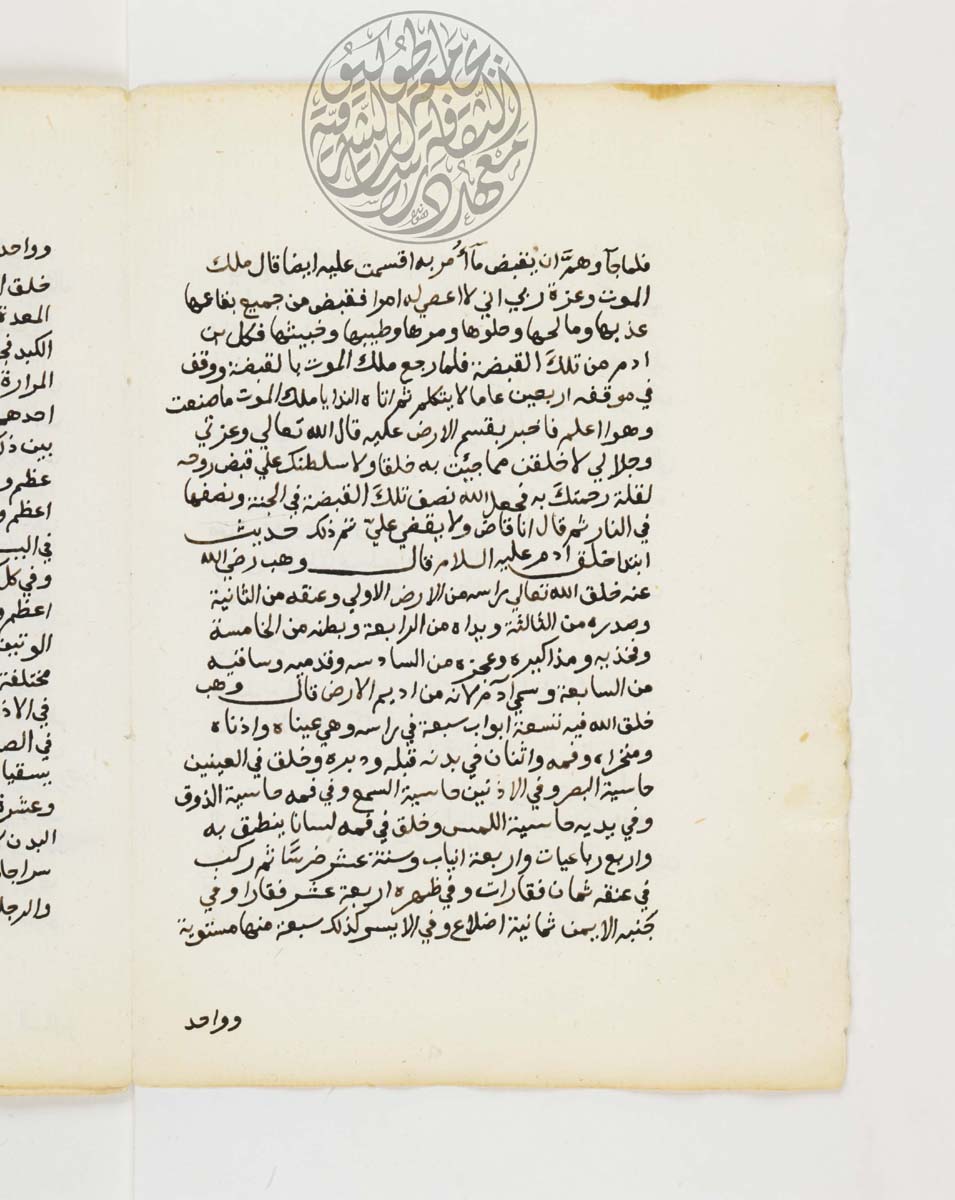 فلما جآ وهمَّ ان يقبض مآ أُمر به اقسمت عليه ايضا قال ملك
الموت وعزة ربي اني لا اعصي له امرا فقبض من جميع بقاعها
عذبها ومالحها وحلوها ومرها وطيبها وخبيثها فكل بن
ادم من تلك القبضة فلما رجع ملك الموت بالقبضة ووقف
في موقفه اربعين عاما لا يتكلم ثم اتاه الندا يا ملك الموت ما صنعت
وهوا اعلم فاخبر بقسم الارض عليه قال الله تعالي وعزتي
وجلالي لاخلقن مما جيئت به خلقا ولاسلطنك علي قبض روحه
لقلة رحمتك به فجعل الله نصف تلك القبضة في الجنة ونصفها
في النار ثم قال انا قاض ولا يقضي عليّ تم ذلك حديث
ابتدا خلق ادم عليه السلام قال وهب رضي الله
عنه خلق الله تعالي راسه من الارض الاولي وعنقه من الثانية
وصدره من الثالثة ويداه من الرابعة وبطنه من الخامسة
وفخذيه ومذاكيره وعجزه من السادسه وقدميه وساقيه
من السابعة وسمي آدم لانه من اديم الارض قال وهب
خلق الله فيه تسعة ابواب سبعة في راسه وهي عيناه واذناه
ومنخراه وفمه واثنان في بدنه قبله ودبره وخلق في العينين
حاسية البصر وفي الاذنين حاسية السمع وفي فمه حاسية الذوق
وفي يديه حاسية اللمس وخلق في فمه لسانا ينطق به
واربع رباعيات واربعة انياب وستة عشر ضرسًا ثم ركب
في عنقه ثمان فقارات وفي ظهره اربعة عشر فقارا وفي
جنبه الايمن ثمانية اضلاع وفي الايسر كذلك سبعة منها مستوية
وواحد
وواحد
خلق ا
المعدة
الكبد في
المرارة
احدهم
بين ذ
عظم و
اعظم و
وفي كل
اعظم و
الوتين
مختلفة
في الاذ
في الص
يسقيا
وعشرة
البدن
سراجا
والرجل